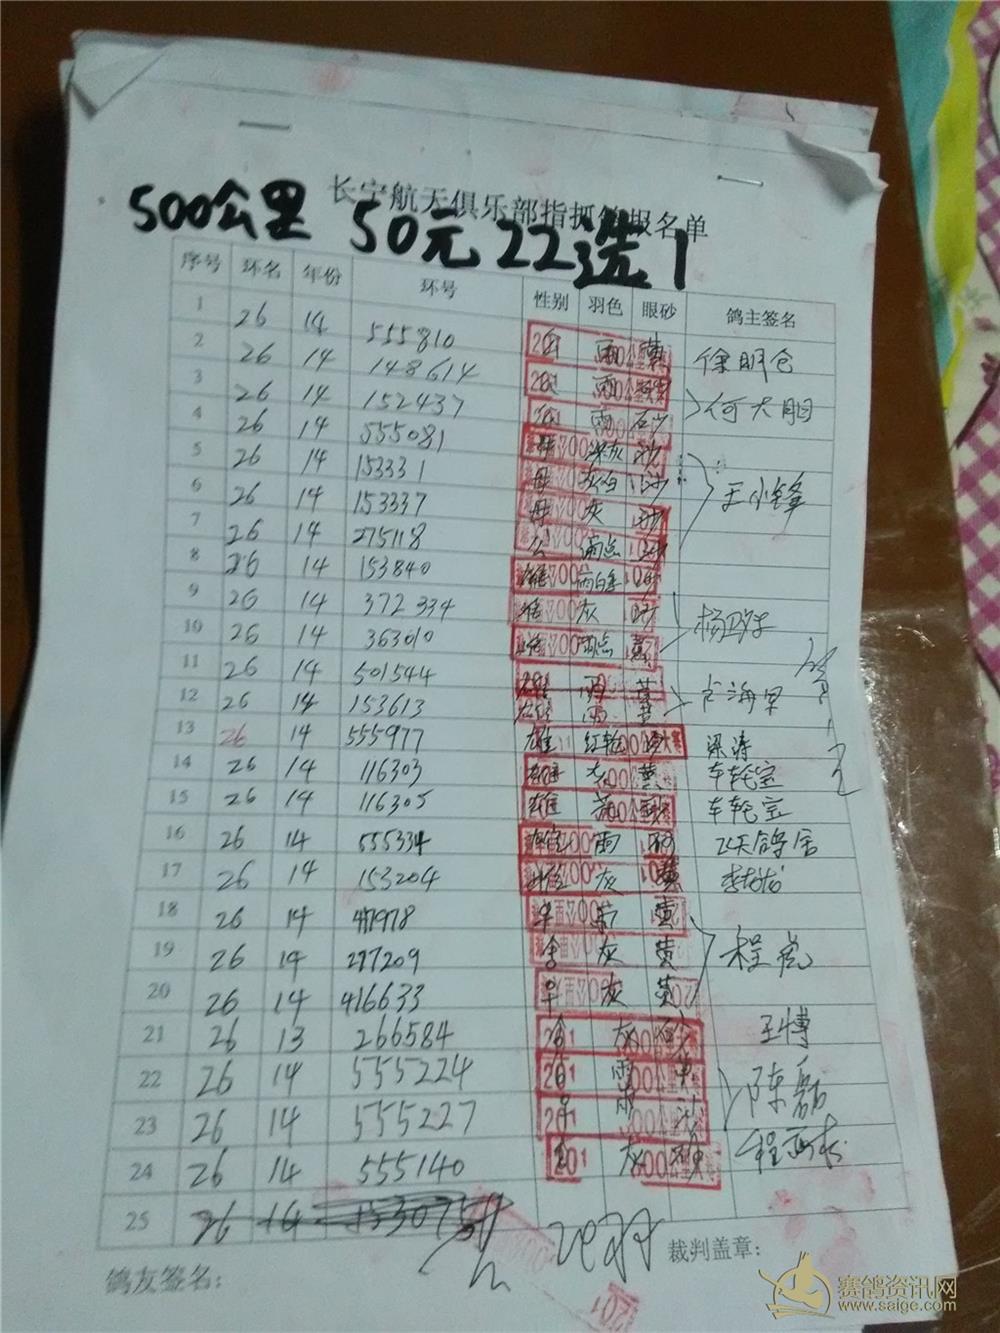 长宁航天俱乐部指 报名单
500公里 50元 22选1
序号 环名 年份 环号 性别 羽色 眼砂 鸽主签名
1 26 14 555810 雨 黄 徐明仓
2 26 14 148614 雨 何大胆
3 26 14 152437 雨 砂
4 26 14 555081 灰 沙
5 26 14 153331 母 灰白 沙 王小锋
6 26 14 153337 母 灰 沙
7 26 14 275118 公 雨点 沙
8 26 14 153840 雄 雨白条 砂
9 26 14 372334 雄 灰 砂
10 26 14 363010 雄 雨点 黄
11 26 14 501544 雄 雨 黄
12 26 14 153613 雄 雨 黄
13 26 14 555977 雄 红轮 砂 梁涛
14 26 14 116303 雄 黄 车轮宝
15 26 14 116305 雄 车轮宝
16 26 14 555334 雨 砂 飞天鸽舍
17 26 14 153204 雄 灰 黄
18 26 14 黄 程虎
19 26 14 277209 灰 黄
20 26 14 416633 灰 黄
21 26 13 266584 灰 砂 王博
22 26 14 555224 雨 黄 陈磊
23 26 14 555227 雨 沙
24 26 14 555140 灰
25 26 14 153075
鸽友签名： 裁判盖章：
赛鸽资讯网
www.saige.com